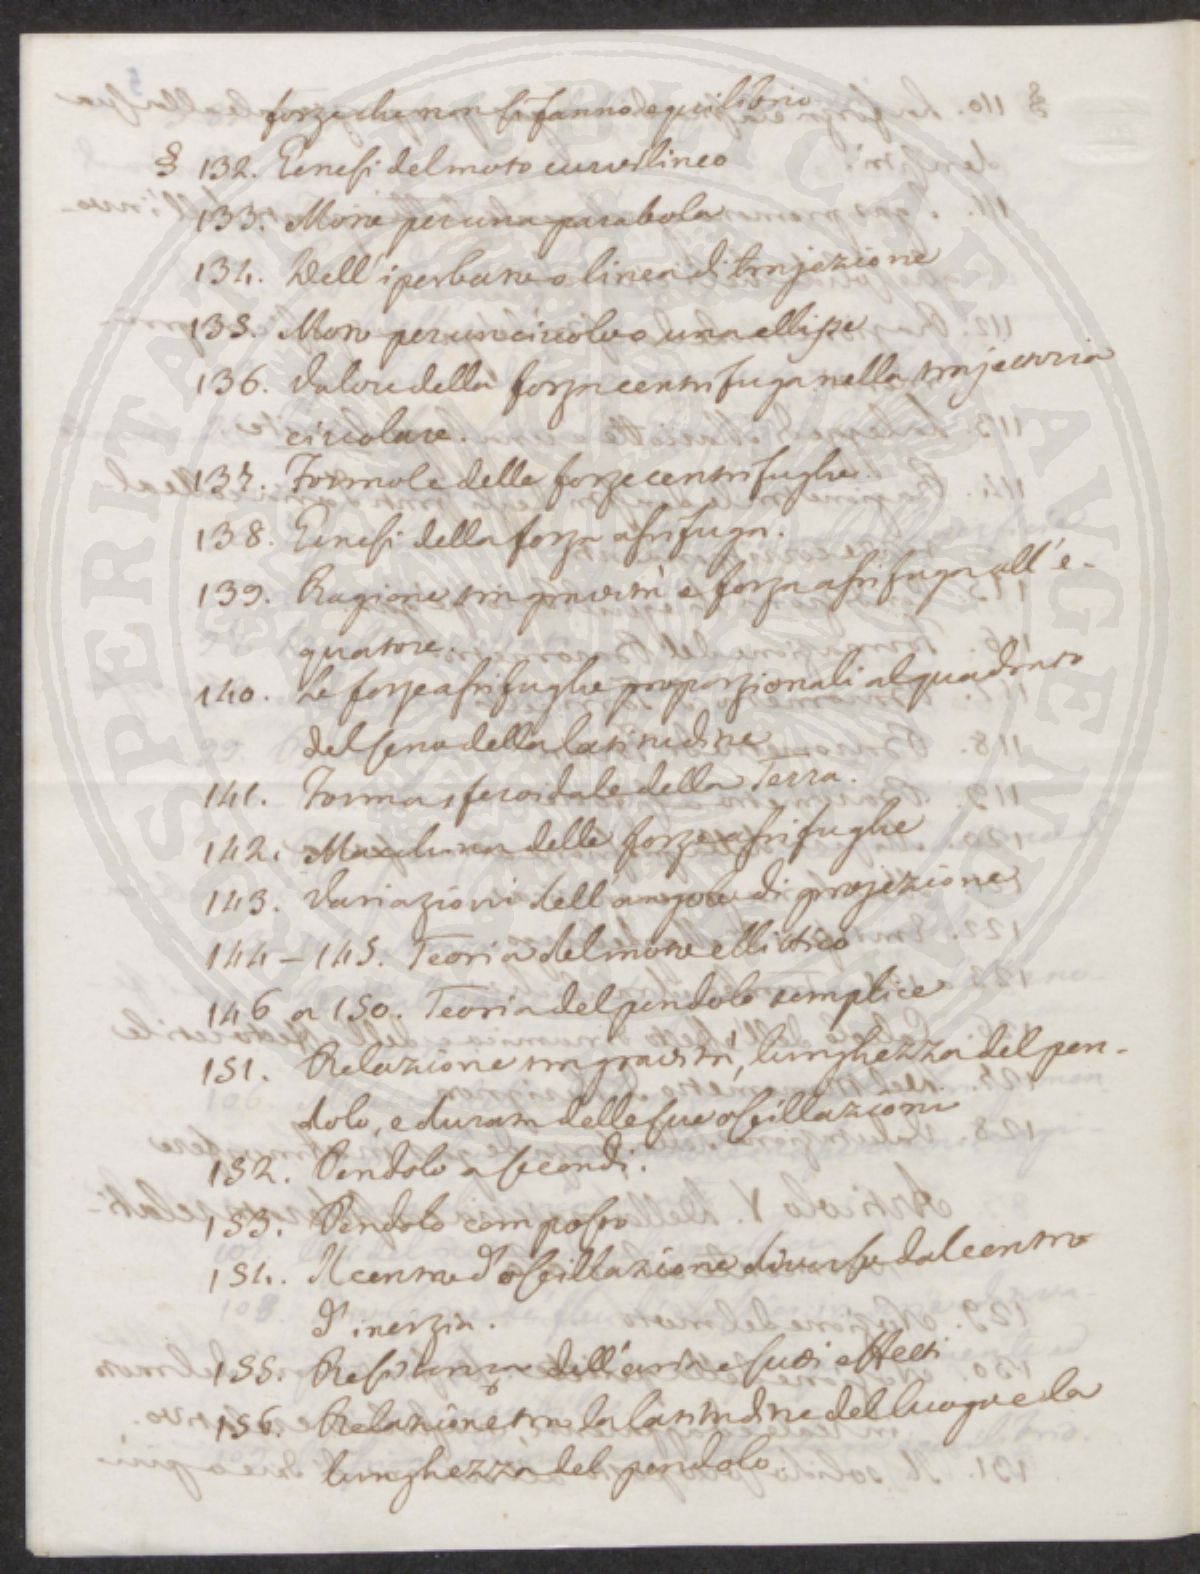 forze che non si fanno equilibrio
§ 132. Genesi del moto curvilineo
133. Moto per una parabola
134. Dell'iperbare o linea di trajezione
135. Moto per un circolo o una ellisse
136. Valore della forza centrifuga nella trajettoria
circolare.
137. Formole delle forze centrifughe.
138. Genesi della forza asrifuga.
139. Ragione tra gravità e forza asrifuga all'e-
quatore.
140. Le forze asrifughe proporzionali al quadrato
del seno della latitudine
141. Forma sferoidale della Terra.
142. Macchina delle forze asrifughe
143. Variazioni dell angolo di projezione
144 – 145. Teoria del moto ellittico
146 a 150. Teoria del pendolo semplice
151. Relazione tra gravità, lunghezza del pen-
dolo, e durata delle sue oscillazioni
152. Pendolo a secondi.
153. Pendolo composto
154. Il centro d'oscillazione diverso dal centro
d'inerzia.
155. Resistenza dell'aria e suoi effetti
156. Relazione tra la latitudine del luogo e la
lunghezza del pendolo.
SPERITATI PUBLICAE AUGENDAE